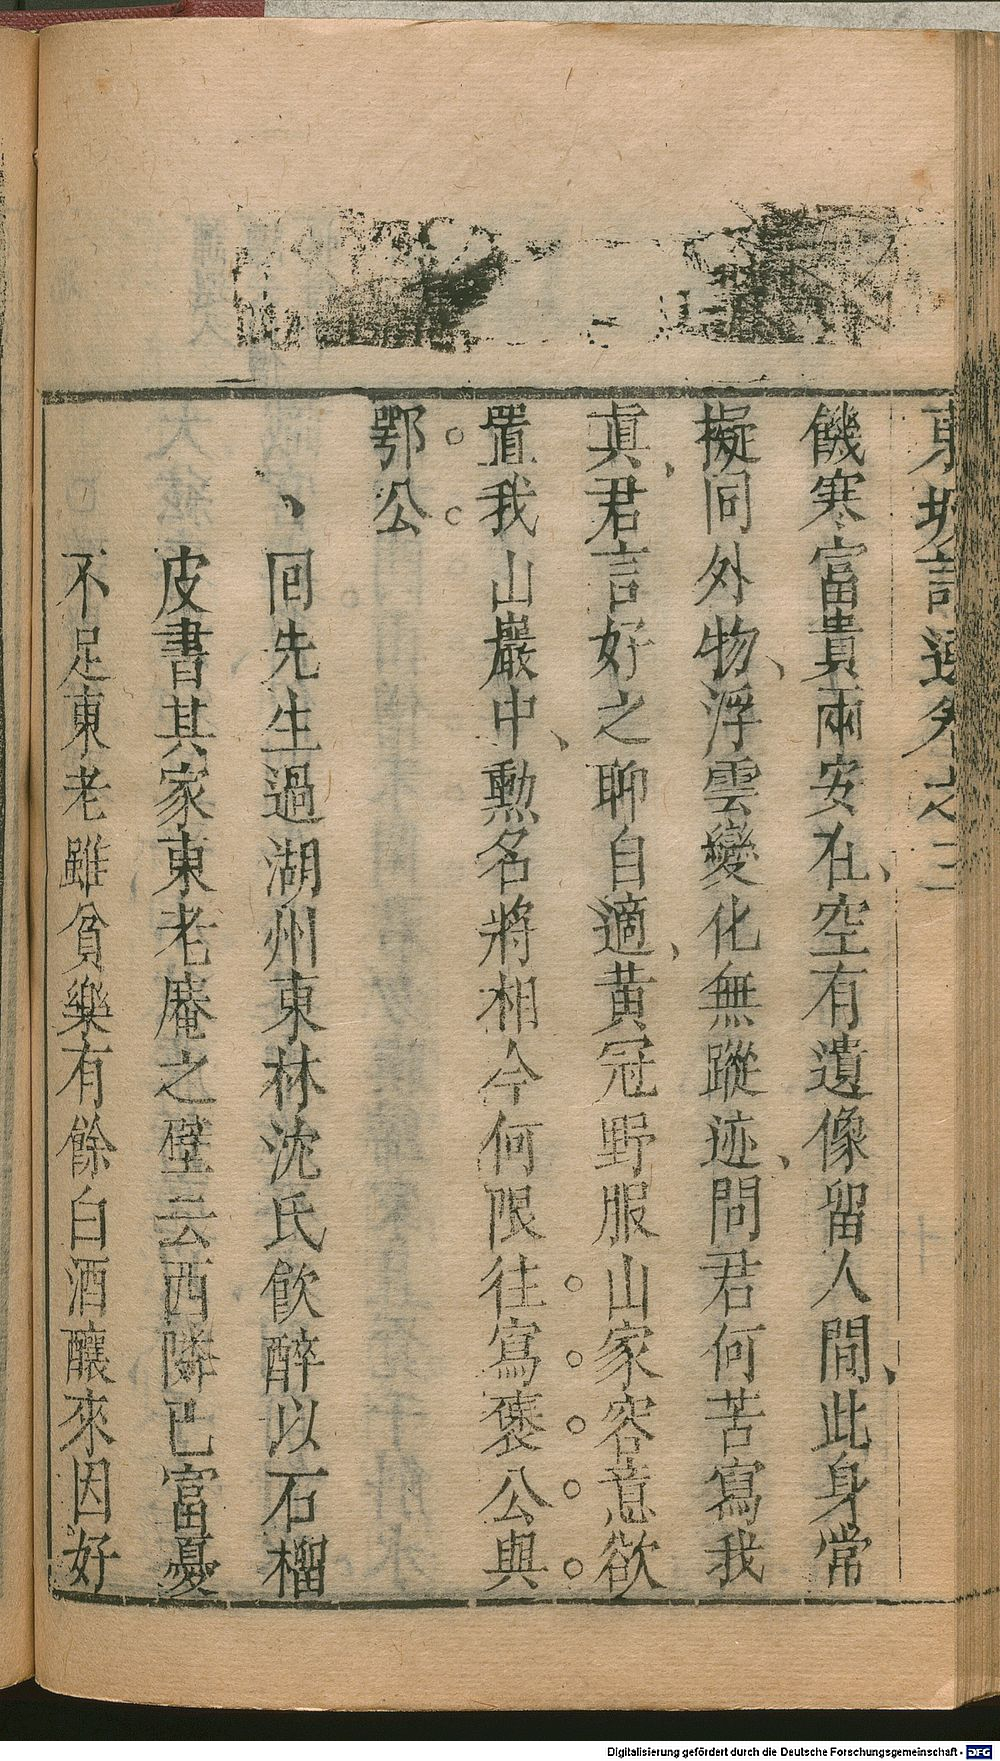 東坡詩選卷之三
饑寒富貴兩安在空有遺像留人間此身常
擬同外物浮雲變化無蹤迹問君何苦寫我
眞君言好之聊自適黃冠野服山家容意欲
置我山巖中勲名將相今何限往寫褒公與
鄂公
回先生過湖州東林沈氏飲醉以石榴
皮書其家東老庵之壁云西隣巳富憂
不足東老雖貧樂有餘白酒釀來因好
Digitalisierung gefördert durch die Deutsche Forschungsgemeinschaft - DFG